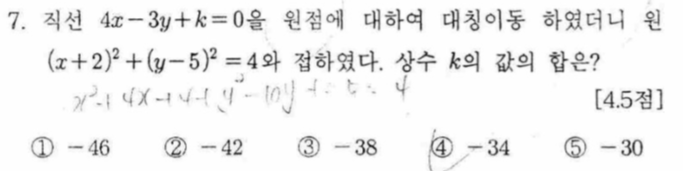 7. 직선 4x-3y+k=0을 원점에 대하여 대칭이동 하였더니 원
(x+2)²+(y-5)²=4와 접하였다. 상수 k의 값의 합은?
[4.5점]
① -46 ② -42 ③ -38 ④ -34 ⑤ -30